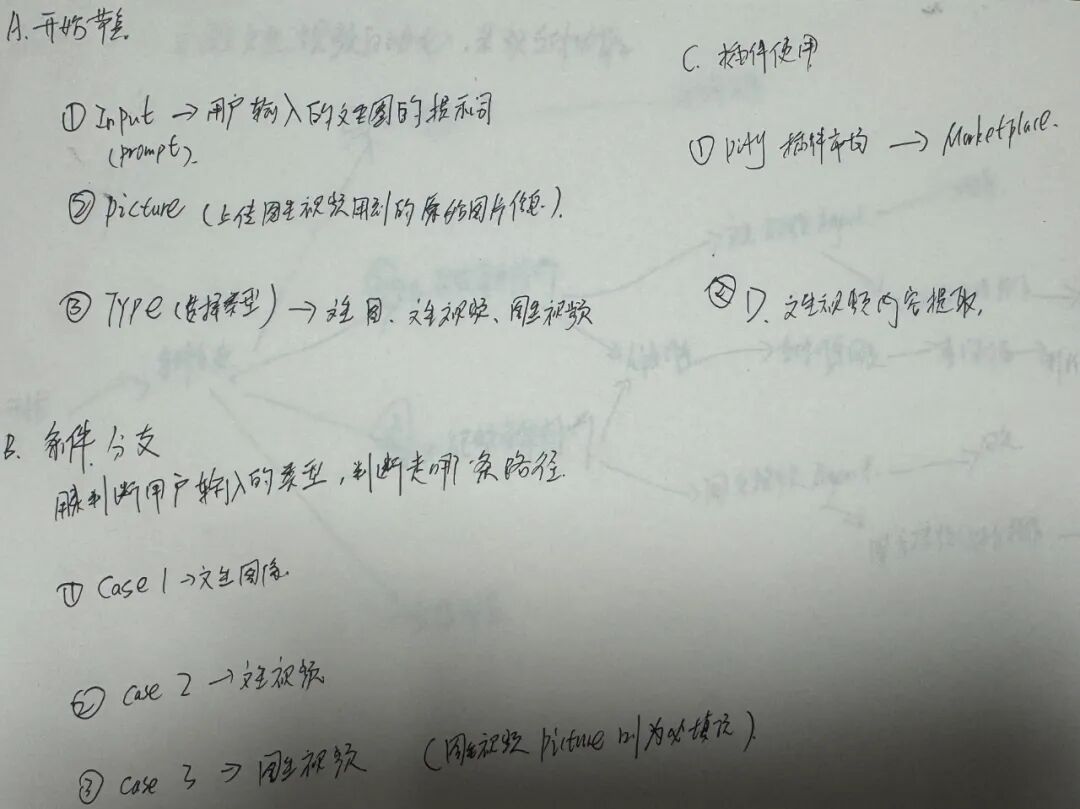 A. 开始节点
① Input → 用户输入的文生图的提示词
(prompt).
② picture (上传图生视频用到的原始图片信息).
③ Type (选择类型) → 文生图、文生视频、图生视频
B. 条件分支
用来判断用户输入的类型,判断走哪条路径.
① Case 1 → 文生图像.
② Case 2 → 文生视频
③ Case 3 → 图生视频 (图生视频 picture 则为必填项).
C. 插件使用
① Dify 插件市场 → Marketplace.
② D. 文生视频内容提取.